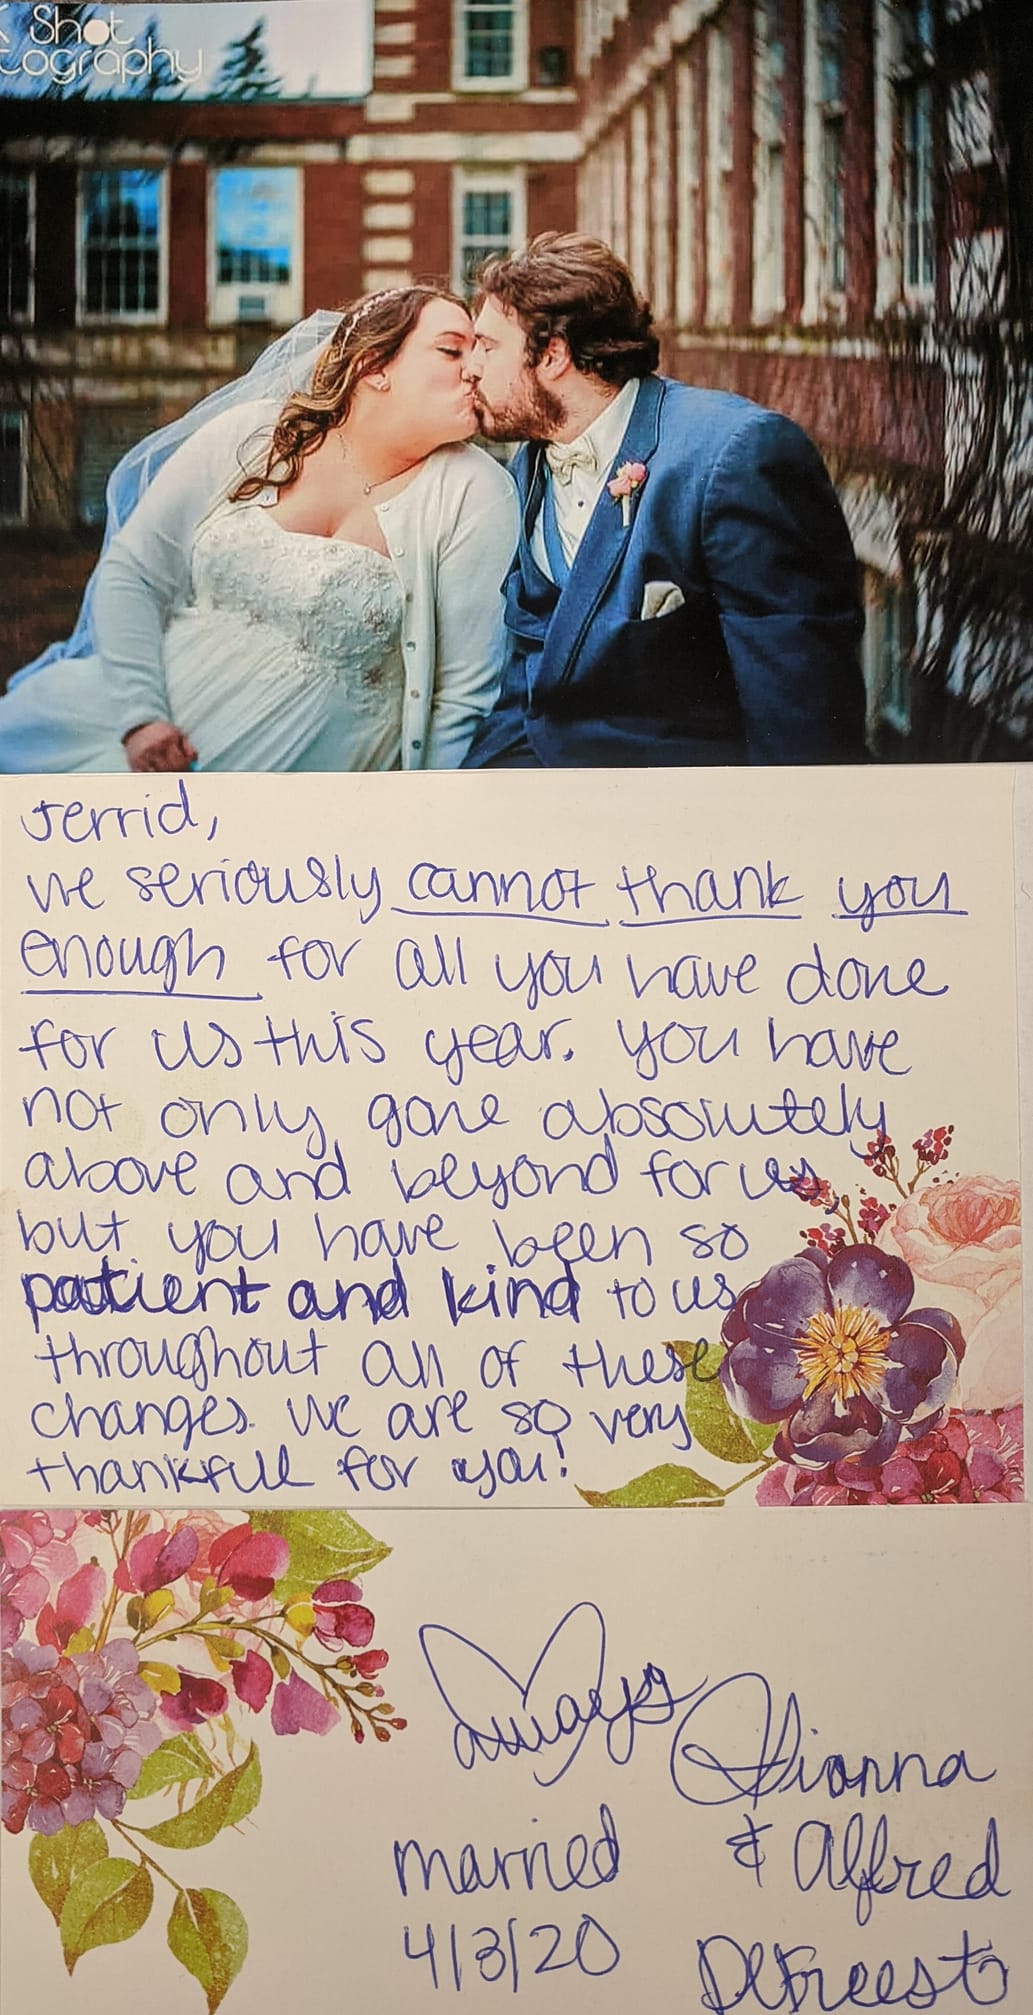 Shot
tography
Jerrid,
we seriously cannot thank you
enough for all you have done
for us this year. you have
not only gone absolutely
above and beyond for us
but you have been so
patient and kind to us
throughout all of these
changes. We are so very
thankful for you!
always
Dianna
married & Alfred
4/3/20 DeFreest